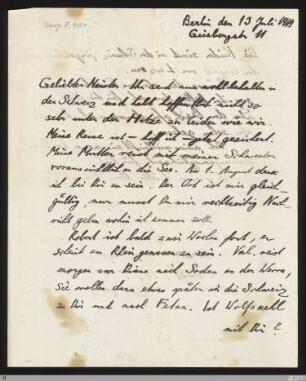 Berlin den 13 Juli 1919
Giesebrechtstr 11
Geliebter Meister. Ihr seid nun wohlbehalten in
der Schweiz und habt hoffentlich nicht so
sehr unter der Hitze zu leiden wie wir.
Meine Reise ist — hoff ich — jetzt gesichert.
Meine Mutter reist mit meiner Schwester
voraussichtlich an die See. Am 1. August denk
ich bei Dir zu sein. Der Ort ist mir gleich-
gültig, nur musst Du mir rechtzeitig Nach-
richt geben wohin ich kommen soll.
Robert ist bald zwei Wochen fort, er
scheint am Rhein gewesen zu sein. Val. reist
morgen mit Diana nach Soden an der Werra,
Sie wollen dann etwas später in die Schweiz
zu Dir und nach Fetan. Ist Wolfskehl
mit Dir?